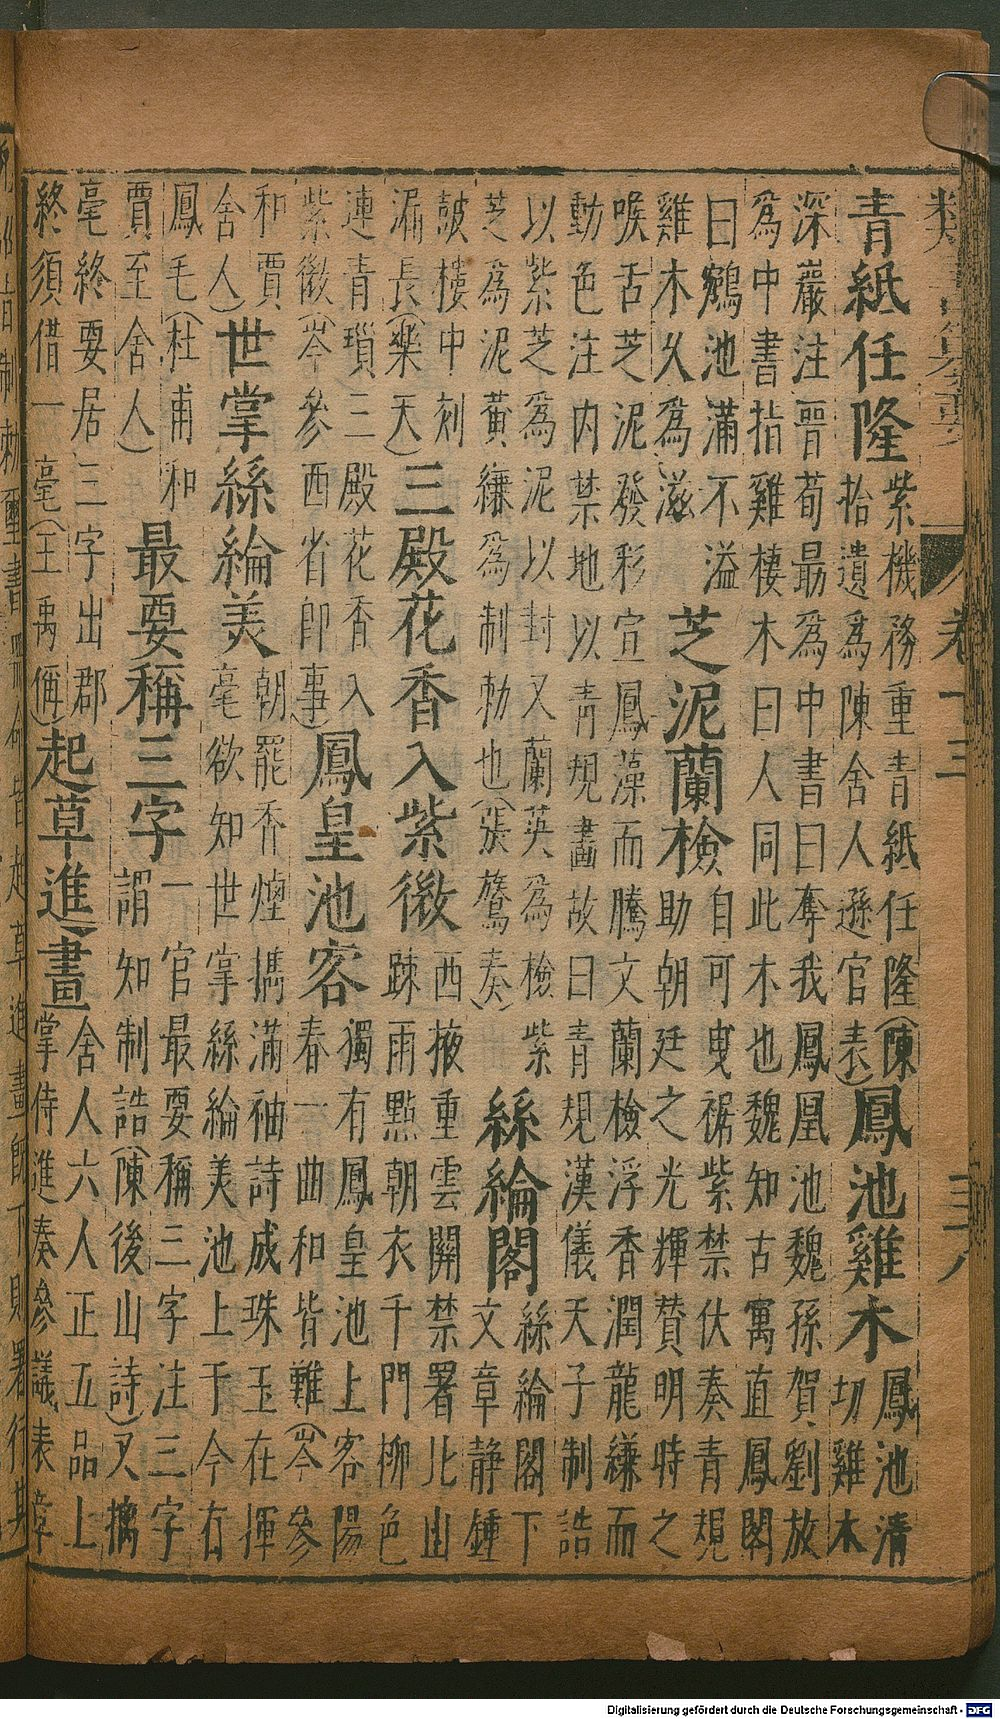 類 卷十三 三十八
青紙任隆
紫機務重青紙任隆(陳
拾遺為陳舍人遜官表)
鳳池雞木
鳳池清
切雞木
深嚴注晋荀最為中書曰奪我鳳凰池魏孫賀劉放
為中書指雞棲木曰人同此木也魏知古寓直鳳閣
曰鵷池滿不溢
雞木久為滋
芝泥蘭檢
自可曳裾紫禁伏奏青規
助朝廷之光輝賛明時之
喉舌芝泥發彩宣鳳藻而騰文蘭檢浮香潤龍縑而
動色注内禁地以青規畫故曰青規漢儀天子制誥
以紫芝為泥以封又蘭英為檢紫
芝為泥黃縑為制勅也(張鷟奏)
絲綸閣
絲綸閣下
文章静鍾
皷樓中刻
漏長(樂天)
三殿花香入紫微
西掖重雲開禁署北山
疎雨點朝衣千門柳色
連青瑣三殿花香入
紫微(岑參西省即事)
鳳皇池客
獨有鳳皇池上客陽
春一曲和皆難(岑參
和賈
舍人)
世掌絲綸美
朝罷香煙擕滿袖詩成珠玉在揮
毫欲知世掌絲綸美池上于今有
鳳毛(杜甫和
賈至舍人)
最要稱三字
一官最要稱三字注三字
謂知制誥(陳後山詩)又摛
毫終要居三字出郡
終須借一毫(王禹偁)
起草進畫
舍人六人正五品上
掌侍進奏參議表章
凡詔旨制勅璽書冊命皆起草進畫既下則署行其
Digitalisierung gefördert durch die Deutsche Forschungsgemeinschaft - DFG